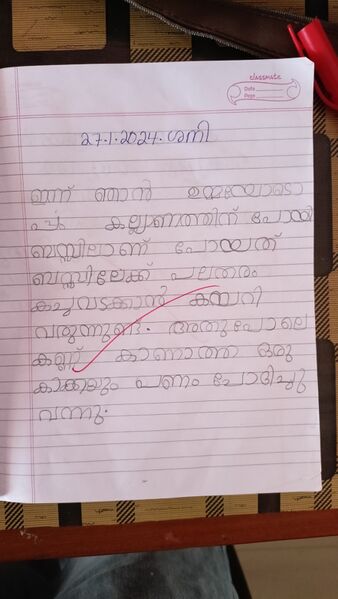 classmate
Date
Page
27.1.2024.ശനി
ഇന്ന് ഞാൻ ഉമ്മയോടൊ
പ്പം കല്ല്യണത്തിന് പോയി
ബസ്സിലാണ് പോയത്
ബസ്സിലേക്ക് പലതരം
കച്ചവടക്കാൻ കയറി
വരുന്നുണ്ട്. അതുപോലെ
കണ്ണ് കാണാത്ത ഒരു
കാക്കയും പണം ചോദിച്ചു
വന്നു.